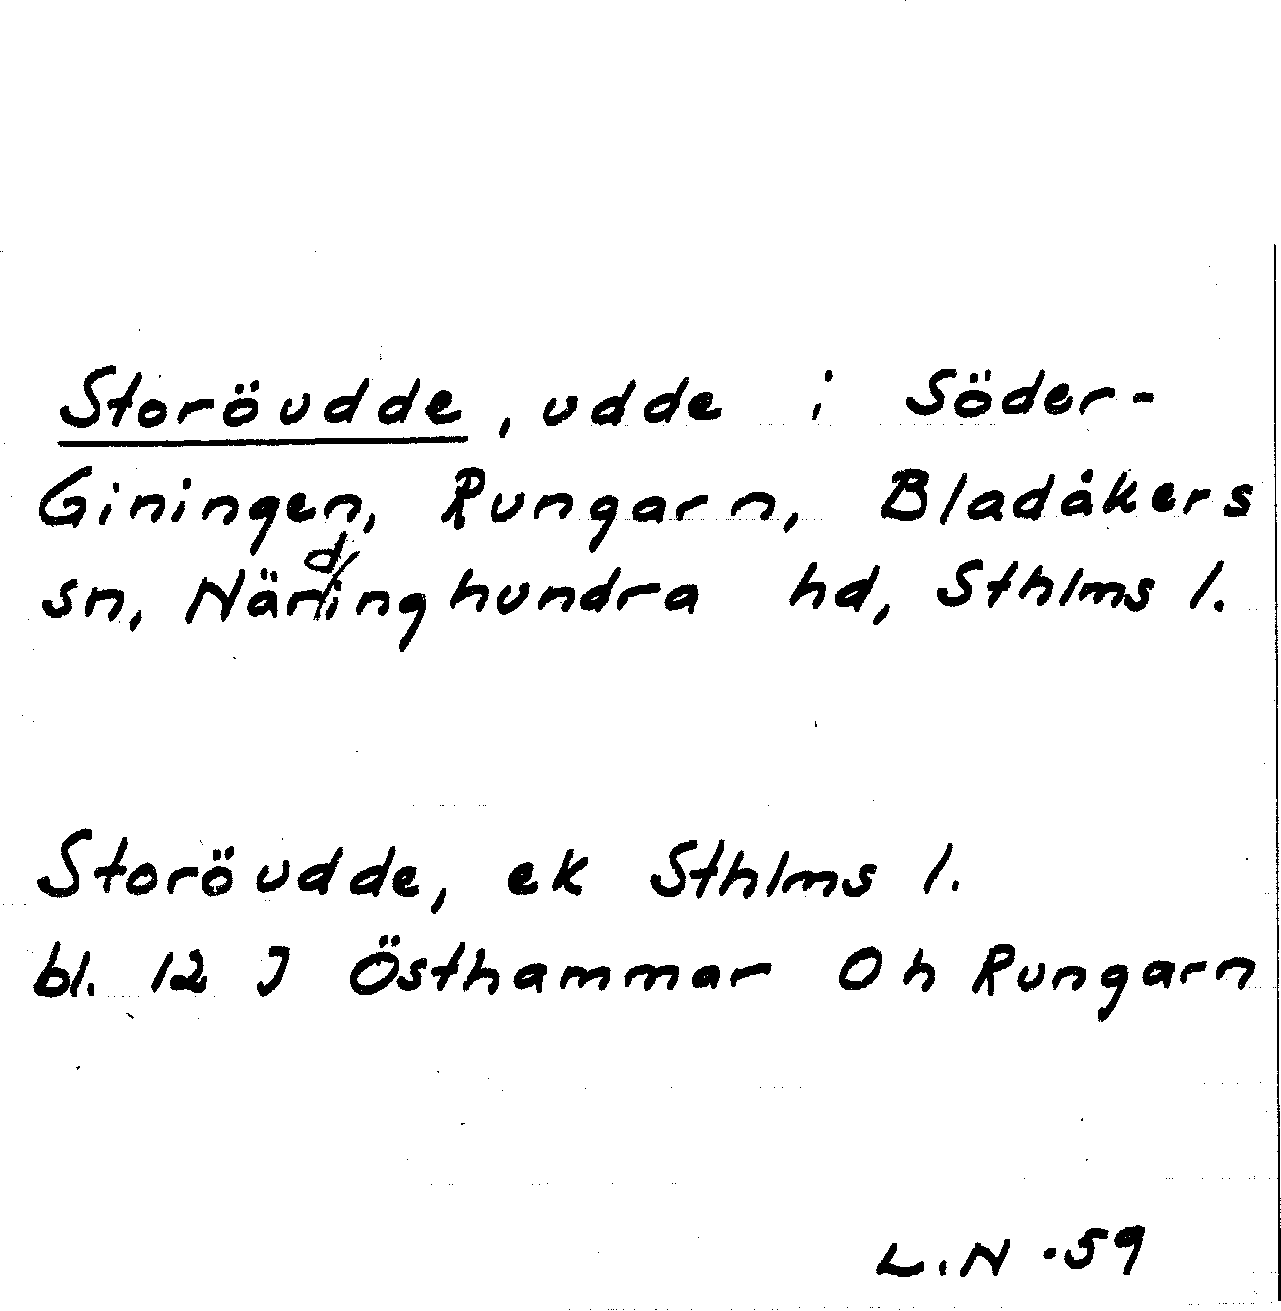 Storöudde, udde i Söder-
Giningen, Rungarn, Bladåkers
sn, Närdinghundra hd, Sthlms l.
Storöudde, ek Sthlms l.
bl. 12 J Östhammar Oh Rungarn
L.N -59